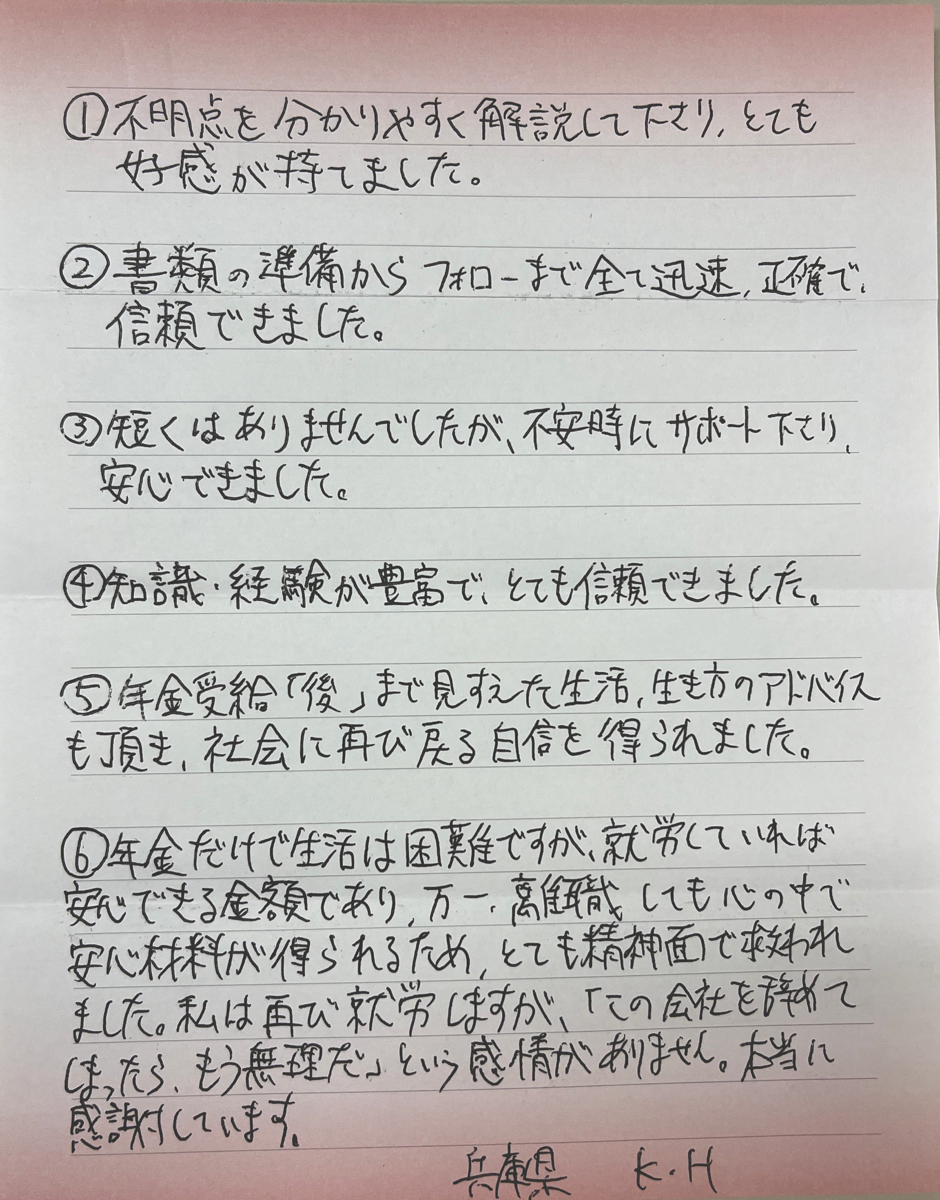 ①不明点を分かりやすく解説して下さり、とても
好感が持てました。
②書類の準備からフォローまで全て迅速、正確で、
信頼できました。
③短くはありませんでしたが、不安時にサポート下さり、
安心できました。
④知識・経験が豊富で、とても信頼できました。
⑤年金受給「後」まで見すえた生活、生き方のアドバイス
も頂き、社会に再び戻る自信を得られました。
⑥年金だけで生活は困難ですが、就労していれば
安心できる金額であり、万一、離職しても心の中で
安心材料が得られるため、とても精神面で救われ
ました。私は再び就労しますが、「この会社を辞めて
しまったら、もう無理だ」という感情がありません。本当に
感謝しています。
兵庫県 K・H